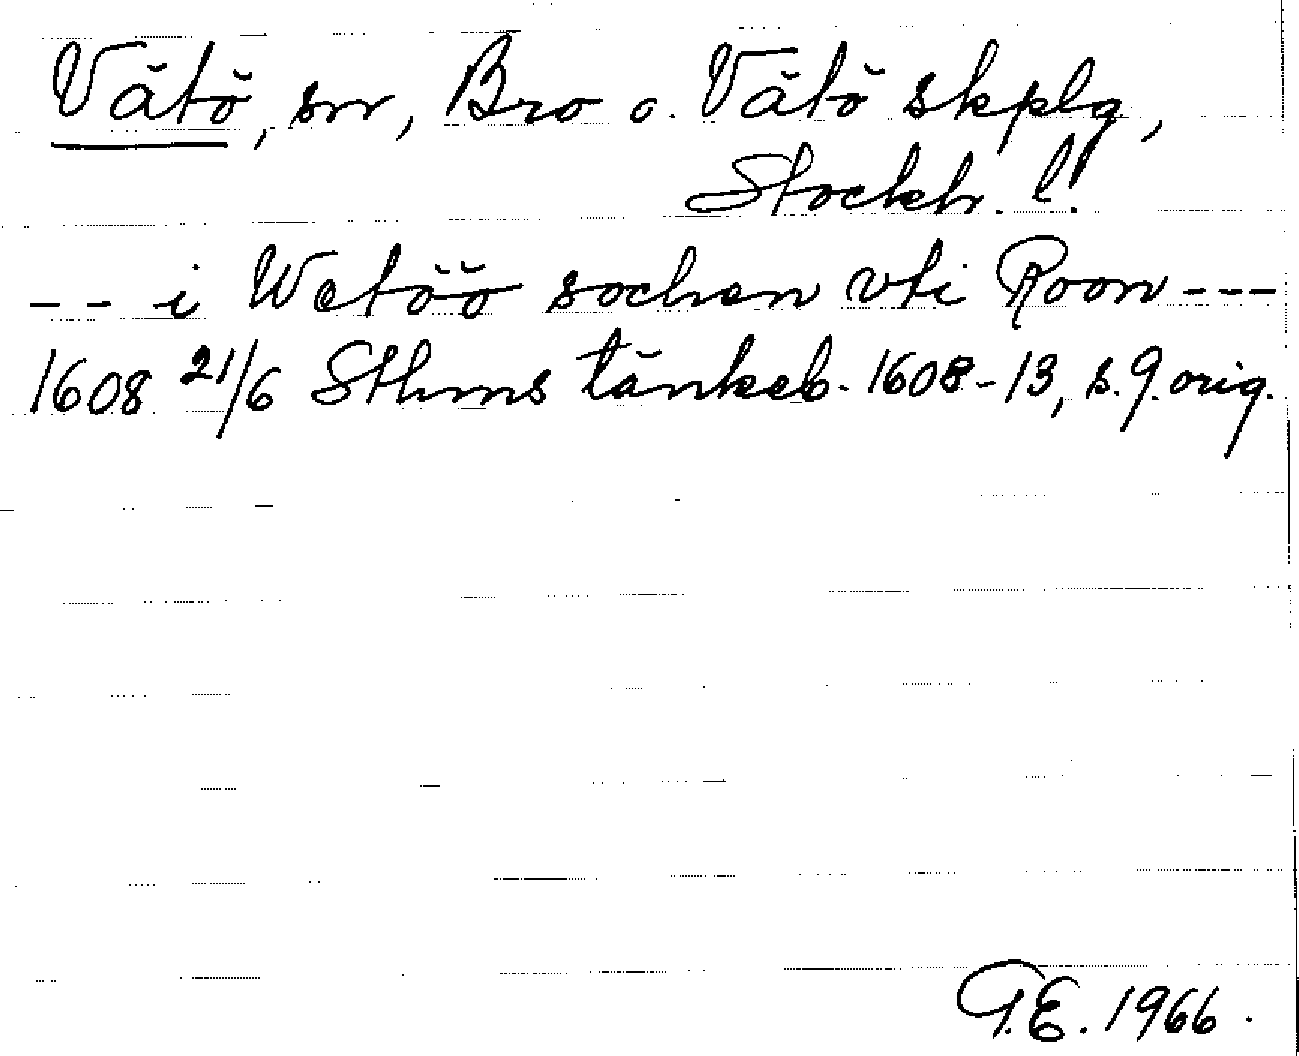 Vätö, sn, Bro o. Vätö skplg,
Stockh. l.
--- i Wetöö sochen vti Roon ---
1608 21/6 Sthms tänkeb. 1608-13, s. 9. orig.
G.E. 1966.